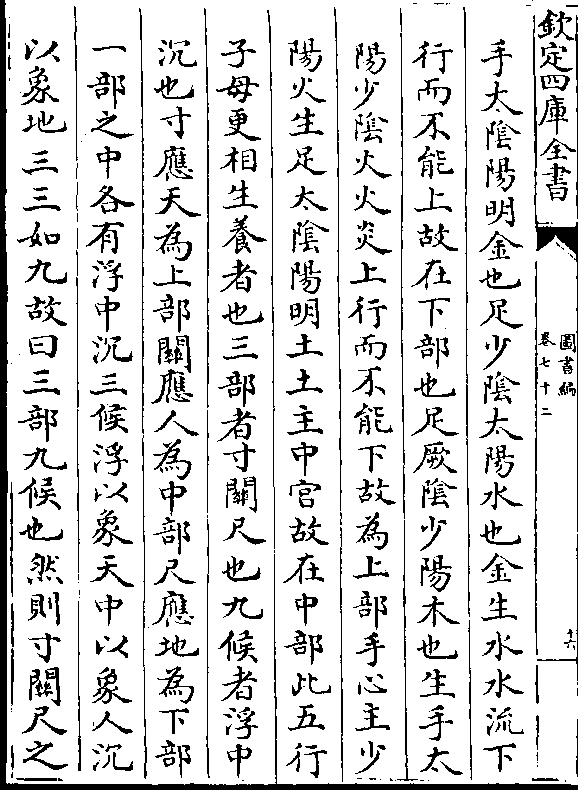 欽定四庫全書
圖書編
卷七十二
十六
手太陰陽明金也足少陰太陽水也金生水水流下
行而不能上故在下部也足厥陰少陽木也生手太
陽少陰火火炎上行而不能下故為上部手心主少
陽火生足太陰陽明土土主中宫故在中部此五行
子母更相生養者也三部者寸關尺也九候者浮中
沉也寸應天為上部關應人為中部尺應地為下部
一部之中各有浮中沉三候浮以象天中以象人沉
以象地三三如九故曰三部九候也然則寸關尺之